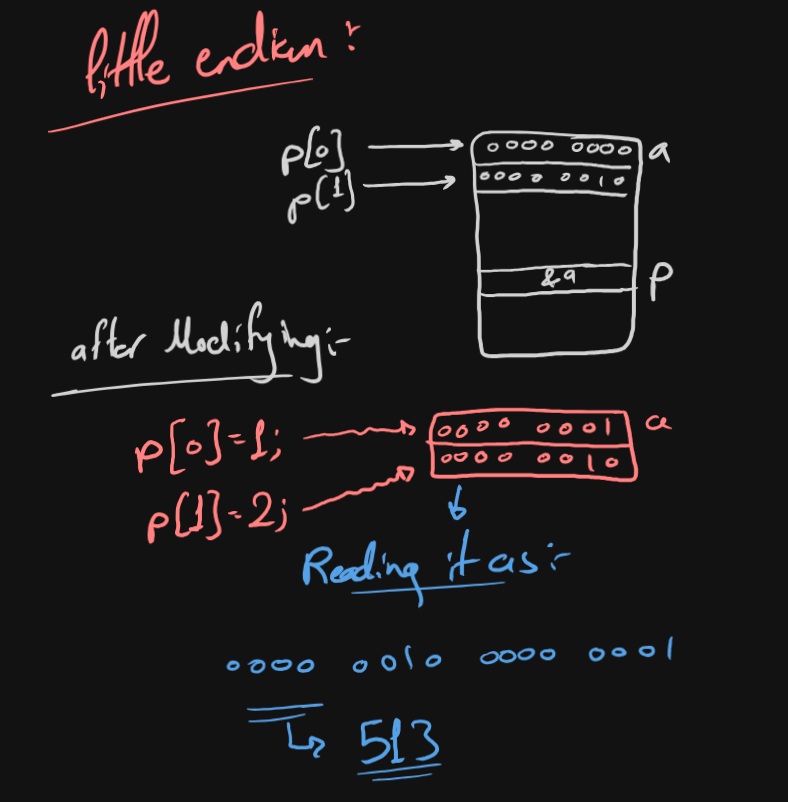 little endian :
p[0] → 0000 0000 a
p[1] → 0000 0010
&a p
after Modifying :-
p[0]=1; → 0000 0001 a
p[1]=2; → 0000 0010
Reading it as :-
0000 0010 0000 0001
513